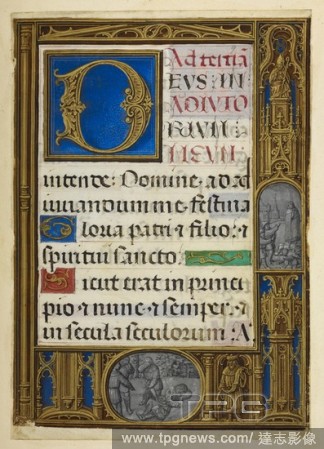 Ad tertiā
DEVS IN
ADIVTO
RIVM
MEVM
intende: Domine, ad ad
iuuandum me festina
Gloria patri et filio: et
spiritui sancto:
Sicut erat in princi
pio et nunc et semper, et
in secula seculorum: A
TPG
www.tpgnews.com/達志影像